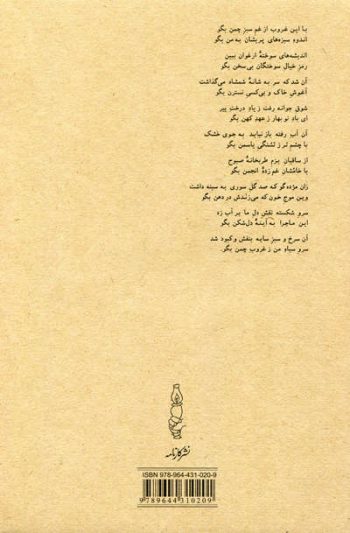 با این غروب از غم سبز چمن بگو
اندوه سبزه‌های پریشان به من بگو
اندیشه‌های سوختهٔ ارغوان ببین
رمز خیال سوختگان بی‌سخن بگو
آن شد که سر به شانهٔ شمشاد می‌گذاشت
آغوش خاک و بی‌کسی نسترن بگو
شوق جوانه رفت ز یاد درخت پیر
ای باد نوبهار ز عهد کهن بگو
آن آب رفته باز نیاید به جوی خشک
با چشم تر ز تشنگی یاسمن بگو
از ساقیان بزم طربخانهٔ صبوح
با خامشان غم‌زدهٔ انجمن بگو
زان مژده‌گو که صد گل سوری به سینه داشت
وین موج خون که می‌زندش در دهن بگو
سرو شکسته نقش دل ما بر آب زد
این ماجرا به آینهٔ دل‌شکن بگو
آن سرخ و سبز سایه بنفش و کبود شد
سرو سیاه من ز غروب چمن بگو
نشر کارنامه
ISBN 978-964-431-020-9
9 789644 310209